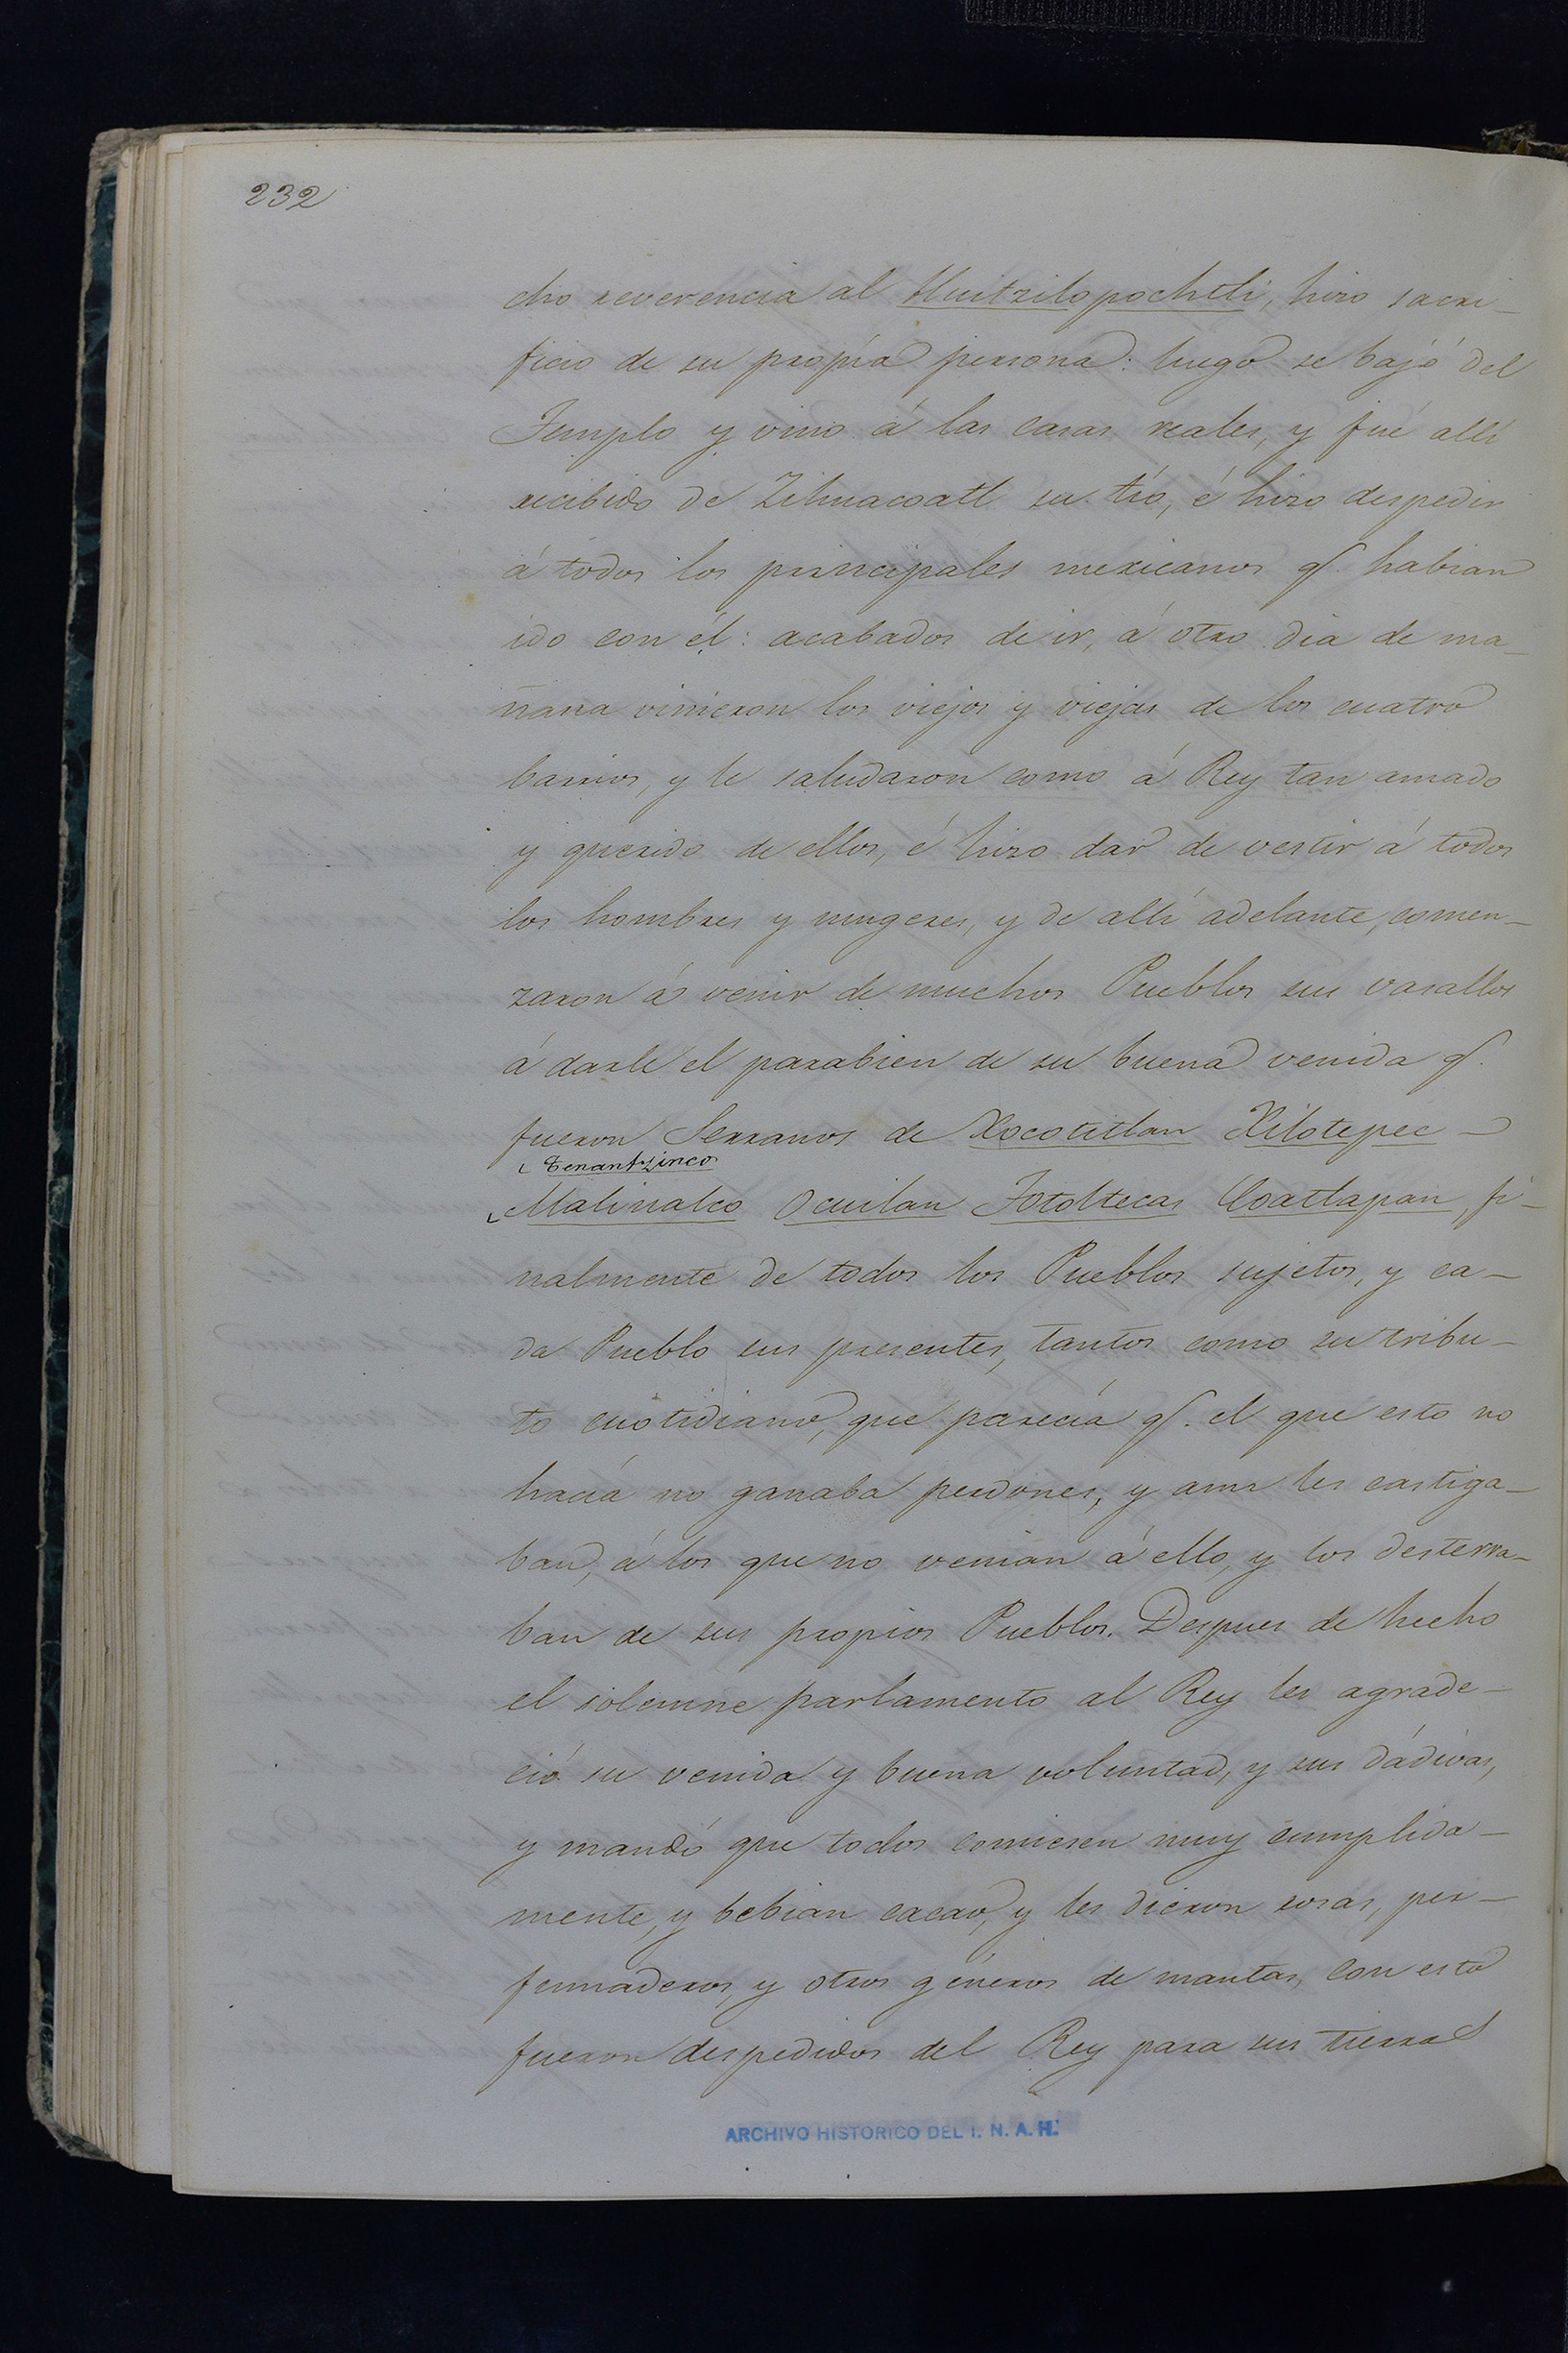 232
cho reverencia al Huitzilopochtli, hizo sacri-
ficio de su propia persona: luego se bajó del
Templo y vino á las casas reales, y fué allí
recibido de Zihuacoatl su tío, é hizo despedir
á todos los principales mexicanos q. habian
ido con él: acabados de ir, á otro dia de ma-
ñana vinieron los viejos y viejas de los cuatro
barrios, y le saludaron como á Rey tan amado
y querido de ellos, é hizo dar de vestir á todos
los hombres y mugeres, y de allí adelante, comen-
zaron á venir de muchos Pueblos sus vasallos
á darle el parabien de su buena venida q.
fueron Serranos de Xocotitlan Xilotepec
Tenantzinco
Malinalco Ocuilan Totoltecas Coatlapan, fi-
nalmente de todos los Pueblos sujetos, y ca-
da Pueblo sus presentes, tantos como su tribu-
to cuotidiano, que parecía q. el que esto no
hacía no ganaba perdones, y aun les castiga-
ban, á los que no venian á ello, y los desterra-
ban de sus propios Pueblos. Despues de hecho
el solemne parlamento al Rey les agrade-
ció su venida y buena voluntad, y sus dádivas,
y mandó que todos comiesen muy cumplida-
mente, y bebian cacao, y les dieron rosas, per-
fumaderos, y otros géneros de mantas, con esto
fueron despedidos del Rey para sus tierras
ARCHIVO HISTORICO DEL I. N. A. H.